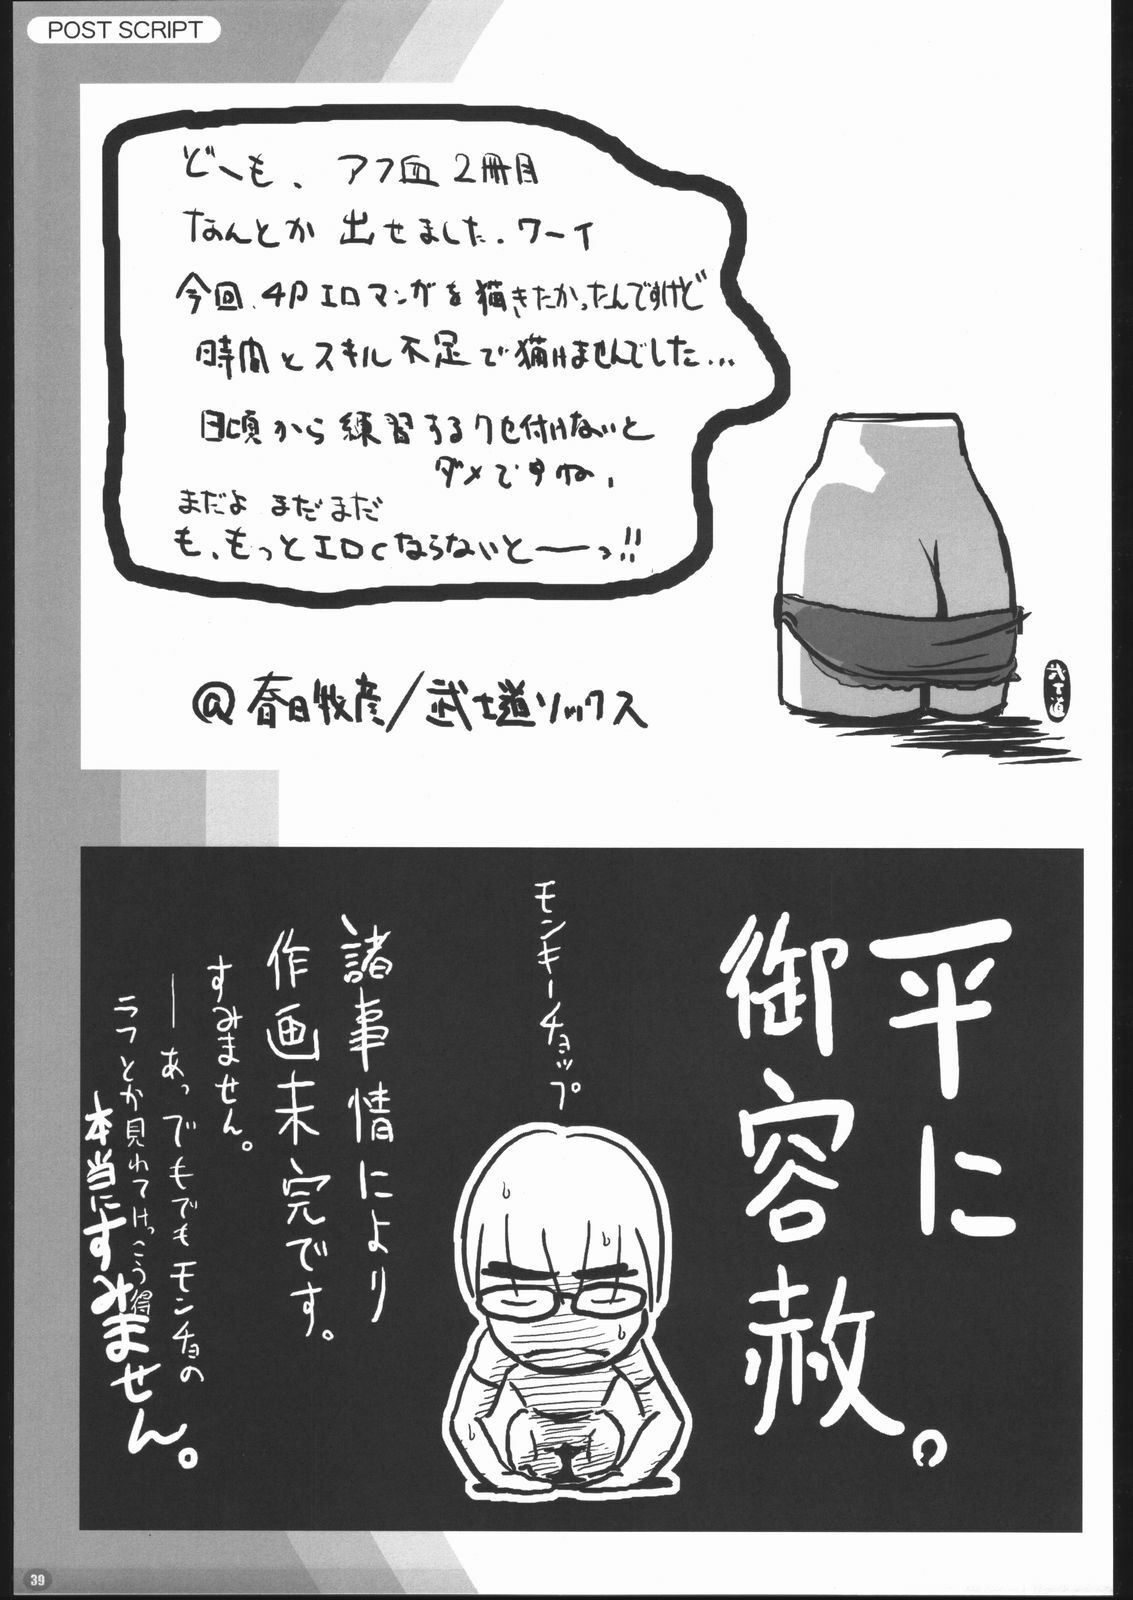 POST SCRIPT
どーも、アフ血2冊目
なんとか出せました。ワーイ
今回、4Pエロマンガを描きたかったんですけど
時間とスキル不足で描けませんでした…
日頃から練習するクセ付けないと
ダメですね。
まだよ まだまだ
も、もっとエロくならないとーーっ!!
@春日牧彦/武士道ソックス
武士道
平に
御容赦。
モンキーチョップ
諸事情により
作画未完です。
すみません。
――あっでもでもモンチョの
ラフとか見れてけっこう得
本当にすみません。
39